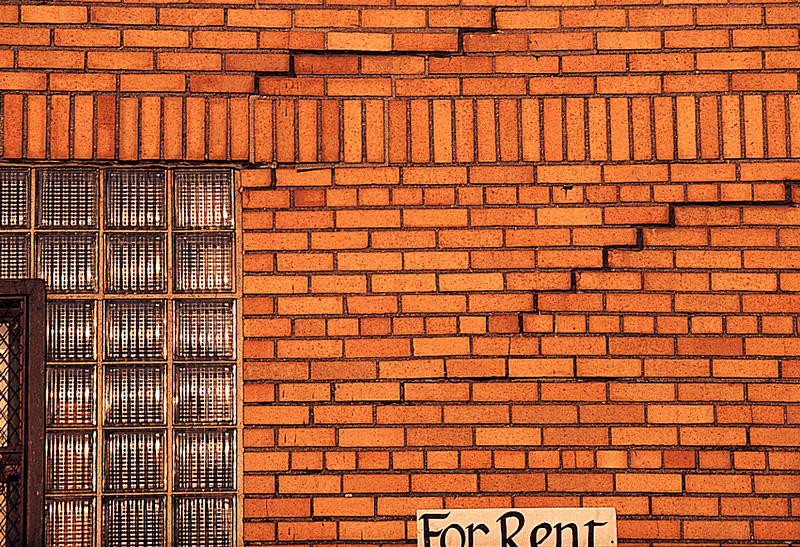 For Rent.